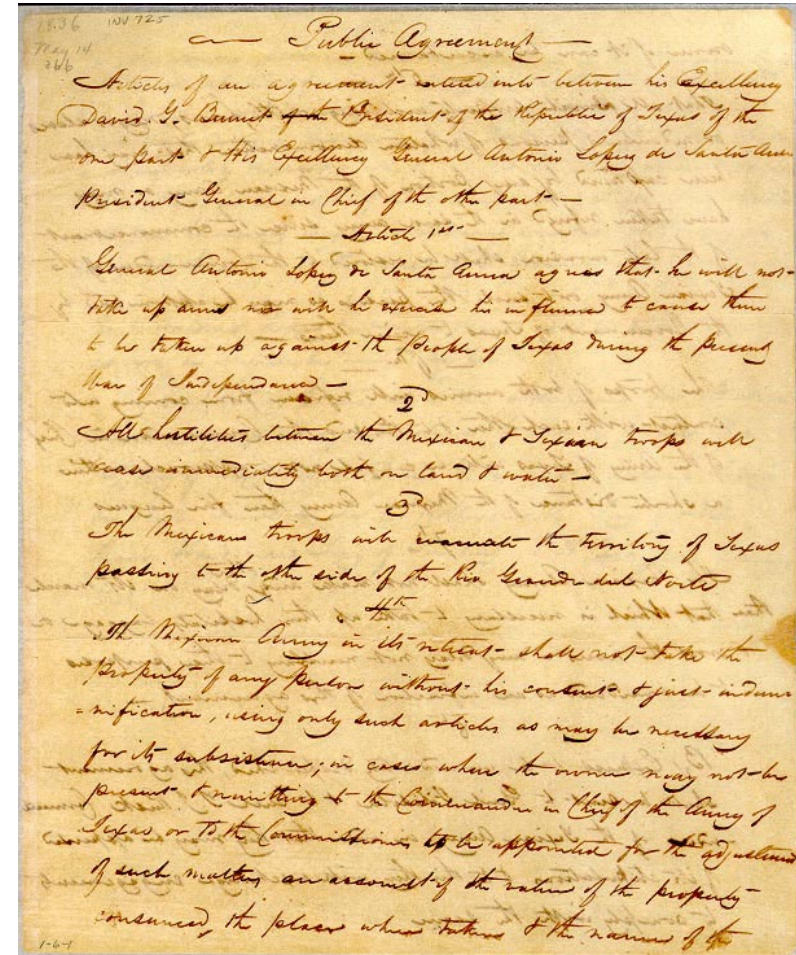 1836 INV 725
May 14
266
Public Agreement
Articles of an agreement entered into between his Excellency
David G. Burnet of the President of the Republic of Texas of the
one part & His Excellency General Antonio Lopez de Santa Anna
President General in Chief of the other part —
Article 1st
General Antonio Lopez de Santa Anna agrees that he will not
take up arms nor will he exercise his influence to cause them
to be taken up against the People of Texas during the present
War of Independance —
2d
All hostilities between the Mexican & Texian troops will
cease immediately both on land & water —
3d
The Mexican troops will evacuate the territory of Texas
passing to the other side of the Rio Grande del Norte
4th
The Mexican Army in its retreat shall not take the
property of any person without his consent & just indem
=nification, using only such articles as may be necessary
for its subsistence, in cases where the owner may not be
present & remitting to the Commander in Chief of the Army of
Texas or to the Commissioner to be appointed for the adjustment
of such matters an account of the value of the property
consumed, the place where taken & the name of the
1-6-1